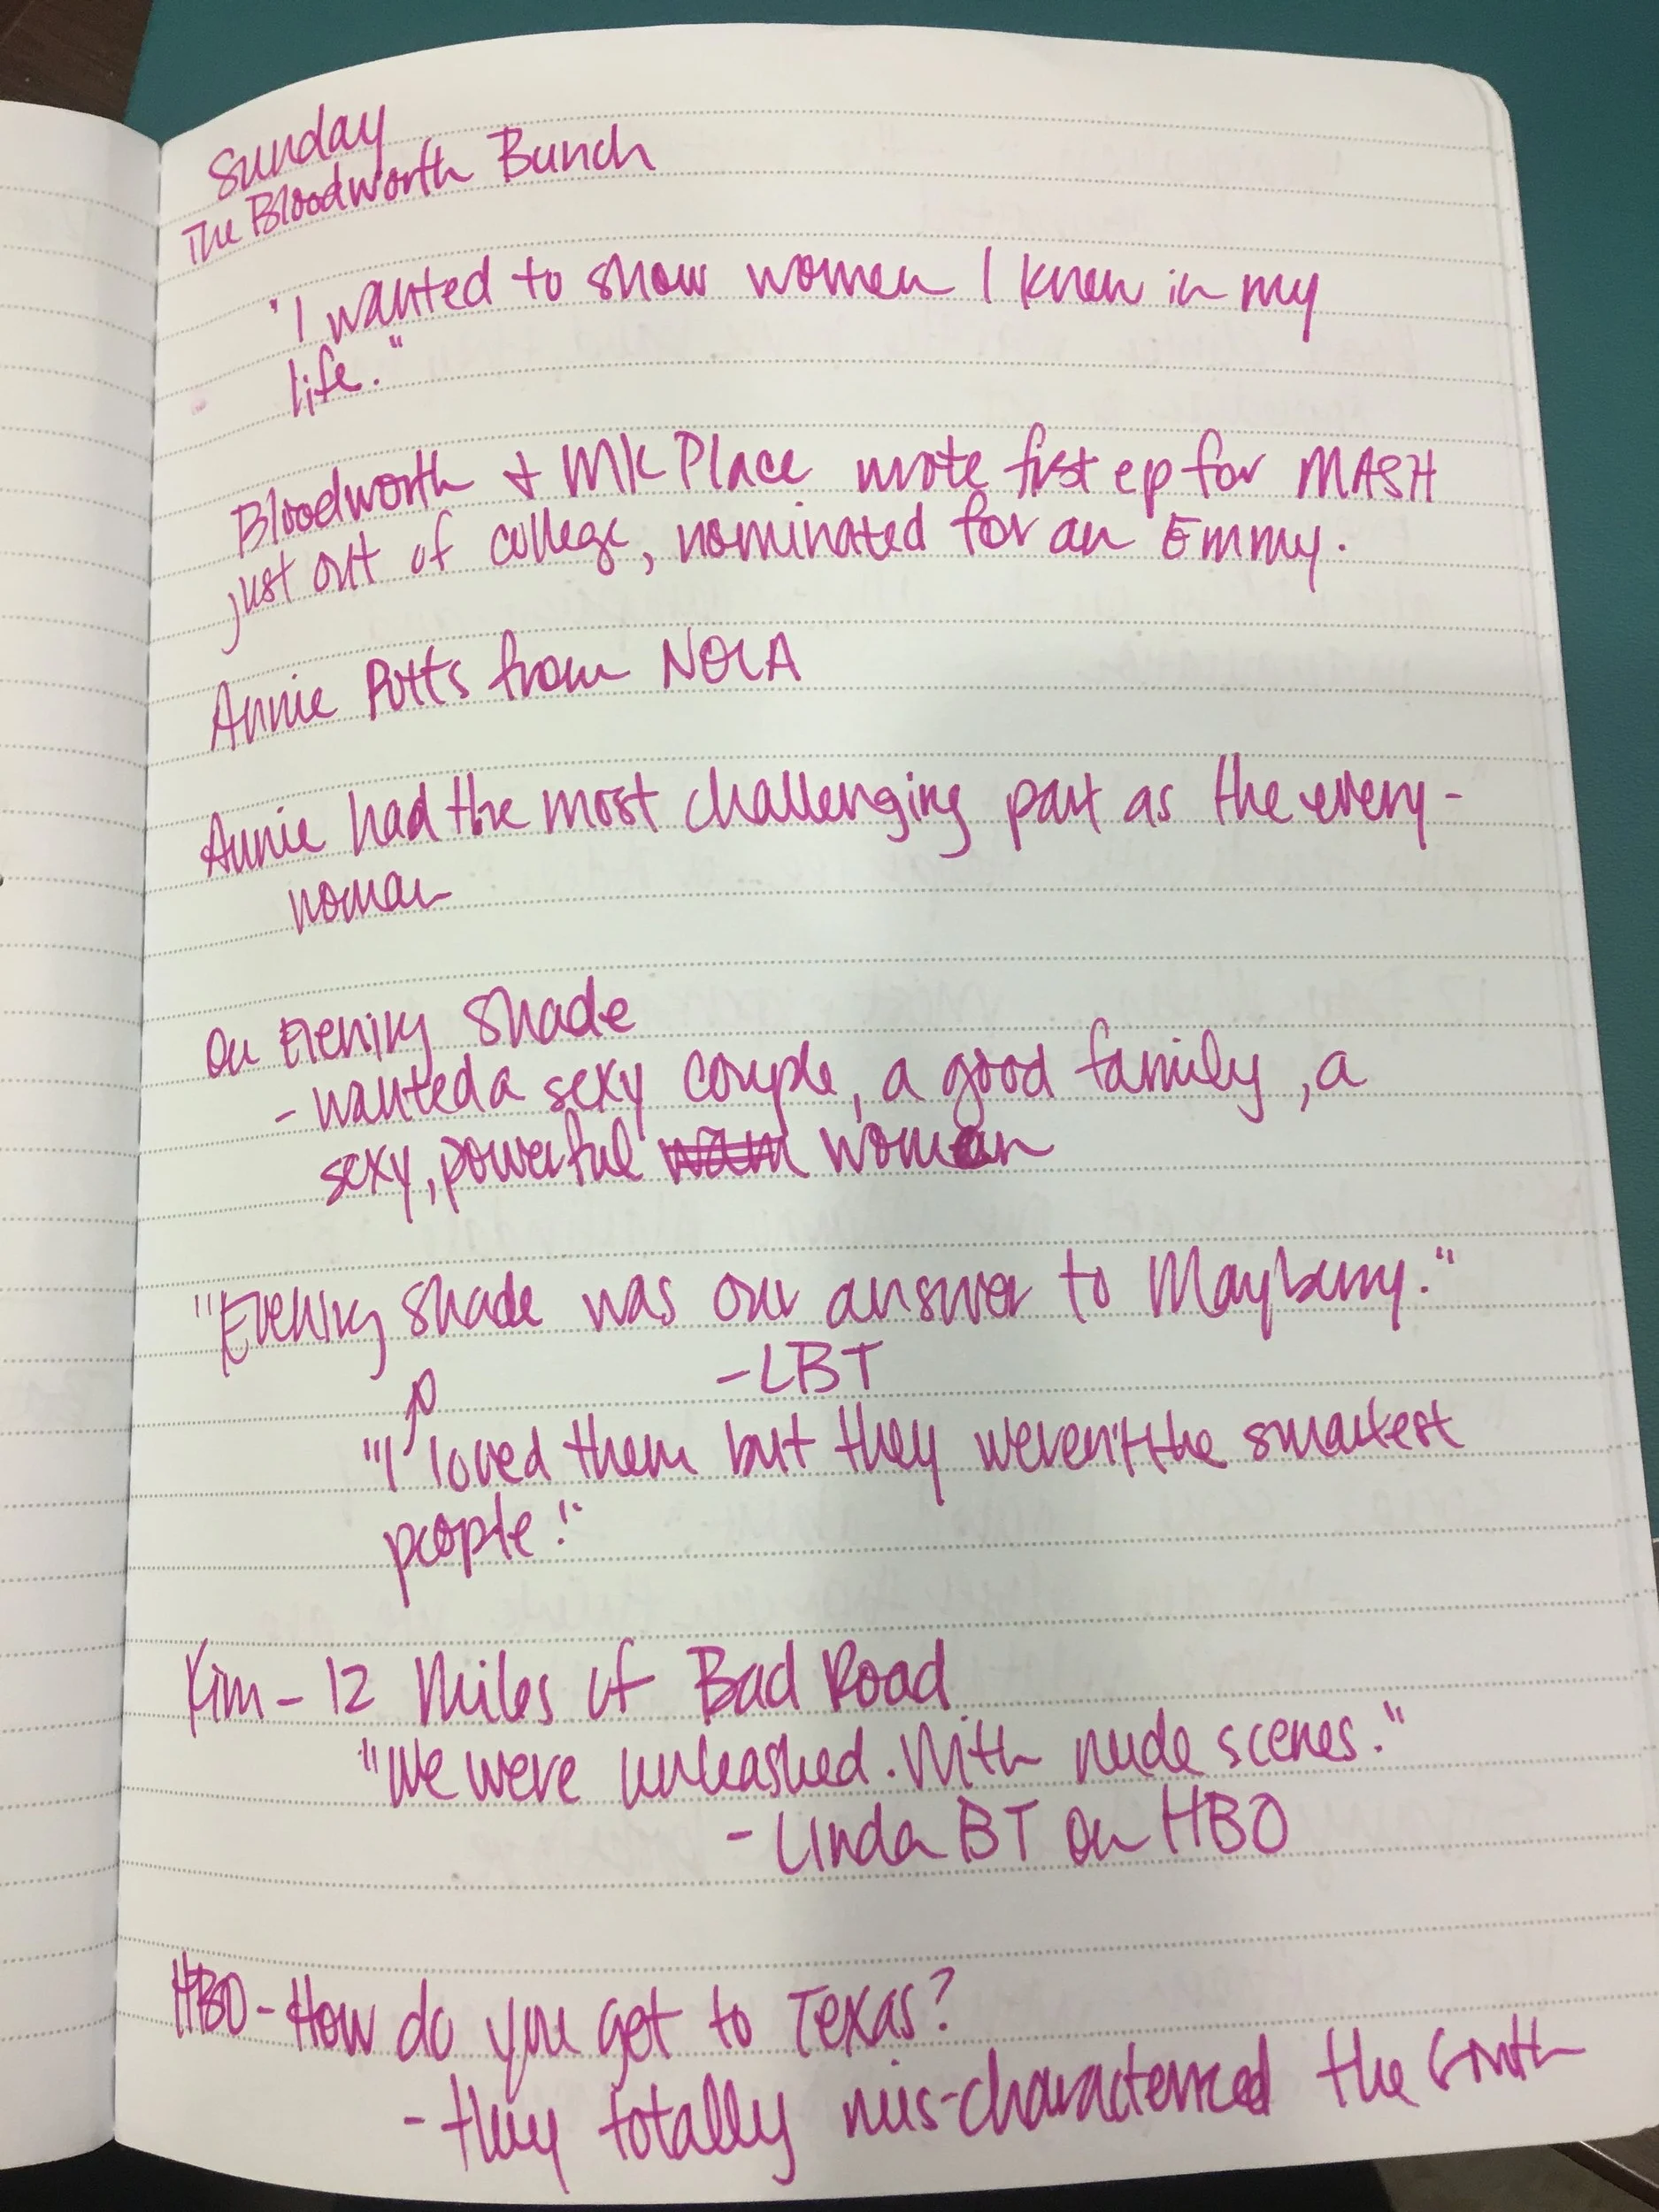 Sunday
The Bloodworth Bunch
"I wanted to show women I knew in my
life."
Bloodworth + MK Place wrote first ep for MASH
just out of college, nominated for an Emmy.
Annie Potts from NOLA
Annie had the most challenging part as the every-
woman
On Evening Shade
- wanted a sexy couple, a good family, a
sexy, powerful woman
"Evening Shade was our answer to Mayberry."
- LBT
"I loved them but they weren't the smartest
people!"
Kim - 12 Miles of Bad Road
"We were unleashed. With nude scenes."
- Linda BT on HBO
HBO - How do you get to Texas?
- they totally mis-characterized the South